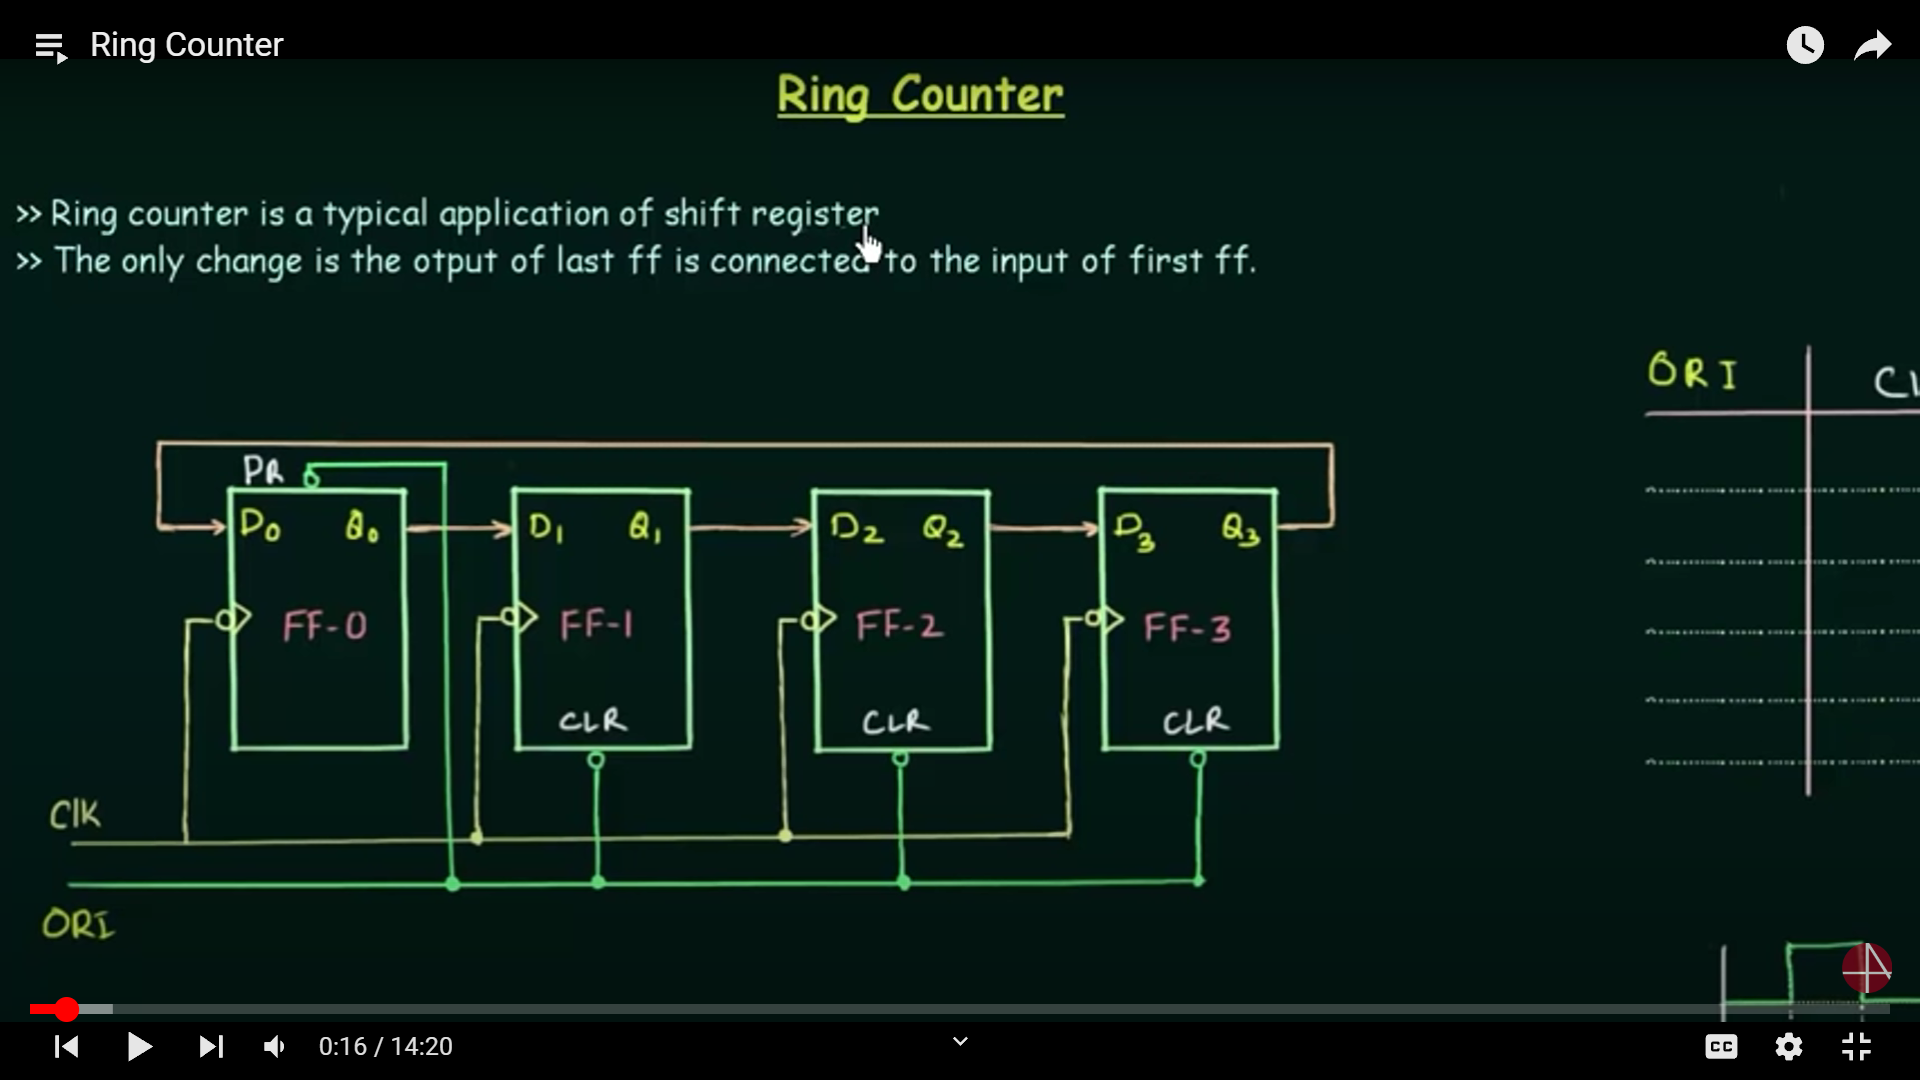 Ring Counter
Ring Counter
>> Ring counter is a typical application of shift register
>> The only change is the otput of last ff is connected to the input of first ff.
ORI
PR
D0 Q0 D1 Q1 D2 Q2 D3 Q3
FF-0 FF-1 FF-2 FF-3
CLR CLR CLR
Clk
ORI
0:16 / 14:20
CC